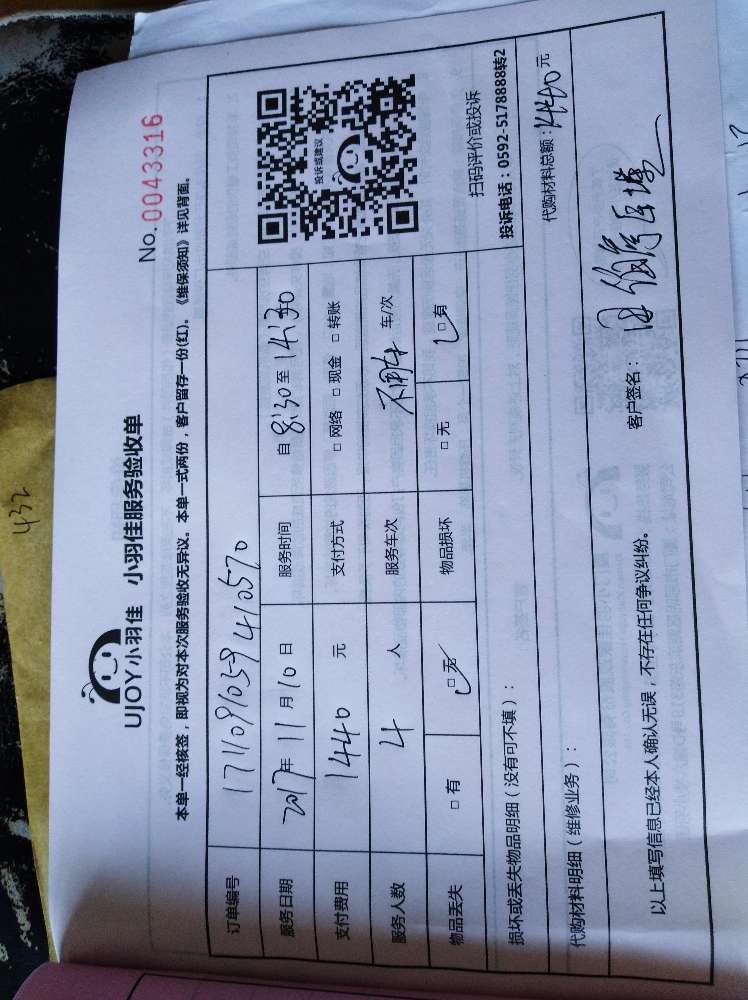 432
UJOY小羽佳 小羽佳服务验收单
No.0043316
本单一经核签，即视为对本次服务验收无异议。本单一式两份，客户留存一份(红)。《维保须知》详见背面。
订单编号 1711091059410570
服务日期 2017年 11月 10日 服务时间 自 8:30 至 14:30
支付费用 1440 元 支付方式 □ 网络 □ 现金 □ 转账
服务人数 4 人 服务车次 不用车 车/次
物品丢失 □ 有 □ 无 物品损坏 □ 无 □ 有
投诉或建议
扫码评价或投诉
投诉电话：0592-5178888转2
损坏或丢失物品明细（没有可不填）：
代购材料明细（维修业务）： 代购材料总额：1440元
以上填写信息已经本人确认无误，不存在任何争议纠纷。 客户签名：